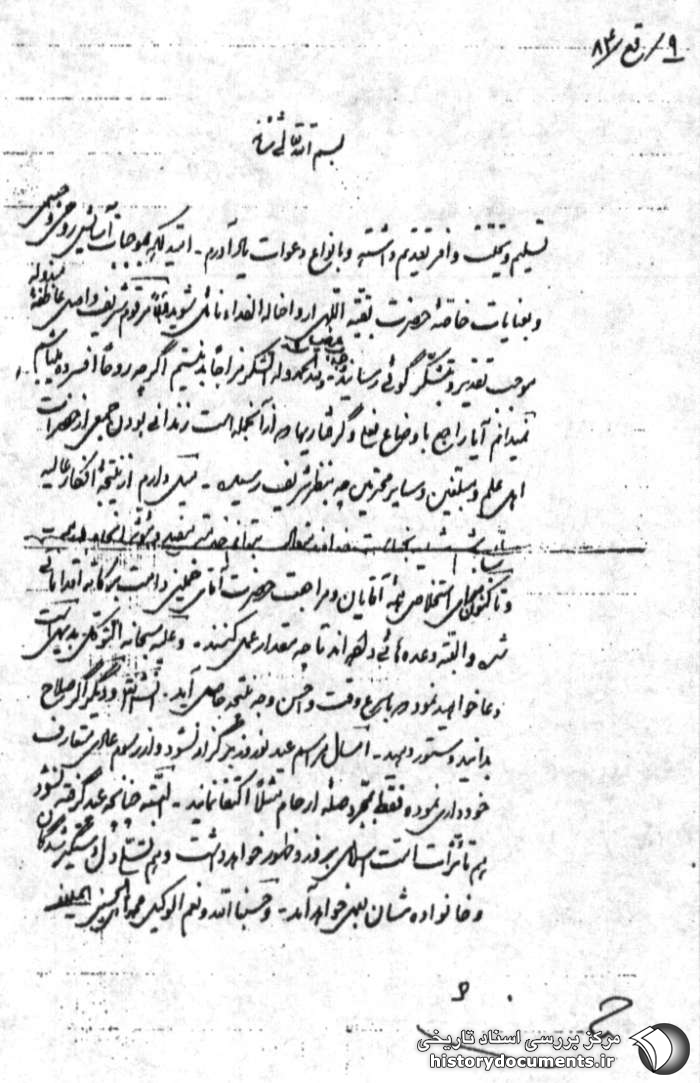 ۹/ ع ۱ / ۸۴
بسم الله تعالی شأنه
تسلیم و تحیت وافر تقدیم داشته و بانواع دعوات یاد آورم - امید که بموجبات آسایش روحی و جسمی
و بعنایات خاصهٔ حضرت بقیة اللهی ارواحنا له الفداء نائل شوید مرقوم شریف واصل عاطفهٔ مبذوله
موجب تقدیر و تشکر گوئی رسانید ولله الحمد وله الشکر مزاجاً بد نیستم اگر چه روحاً افسرده میباشم
نمیدانم آیا راجع باوضاع فعلی و گرفتاریها که از آنجمله است زندانی بودن جمعی از حضرات
اهل علم و مبلغین و سایر محترمین چه بنظر شریف رسیده - میل دارم از نتیجهٔ افکار عالیه
و تاکنون برای استخلاص همهٔ آقایان و مراجعت حضرت آقای خمینی دامت برکاته اقداماتی
شده و البته وعده هائی داده اند تا چه مقدار عمل کنند - و علیه سبحانه التوکل بدیهی است
دعا خواهید نمود که باسرع وقت و احسن وجه نتیجه حاصل آید. انشاء الله و دیگر اگر صلاح
بدانید دستور دهید - امسال مراسم عید نوروز برگزار نشود و از رسوم عالی متعارف
خودداری نموده فقط بمجرد صلهٔ ارحام مثلاً اکتفا نمایند - البته چنانچه عید گرفته نشود
هم تأثرات امت اسلامی بروز و ظهور خواهد داشت و هم تسلا دل دستگیر شدگان
و خانواده شان بعمل خواهد آمد - و حسبنا الله و نعم الوکیل محمد هادی الحسینی المیلانی
مرکز بررسی اسناد تاریخی
historydocuments.ir